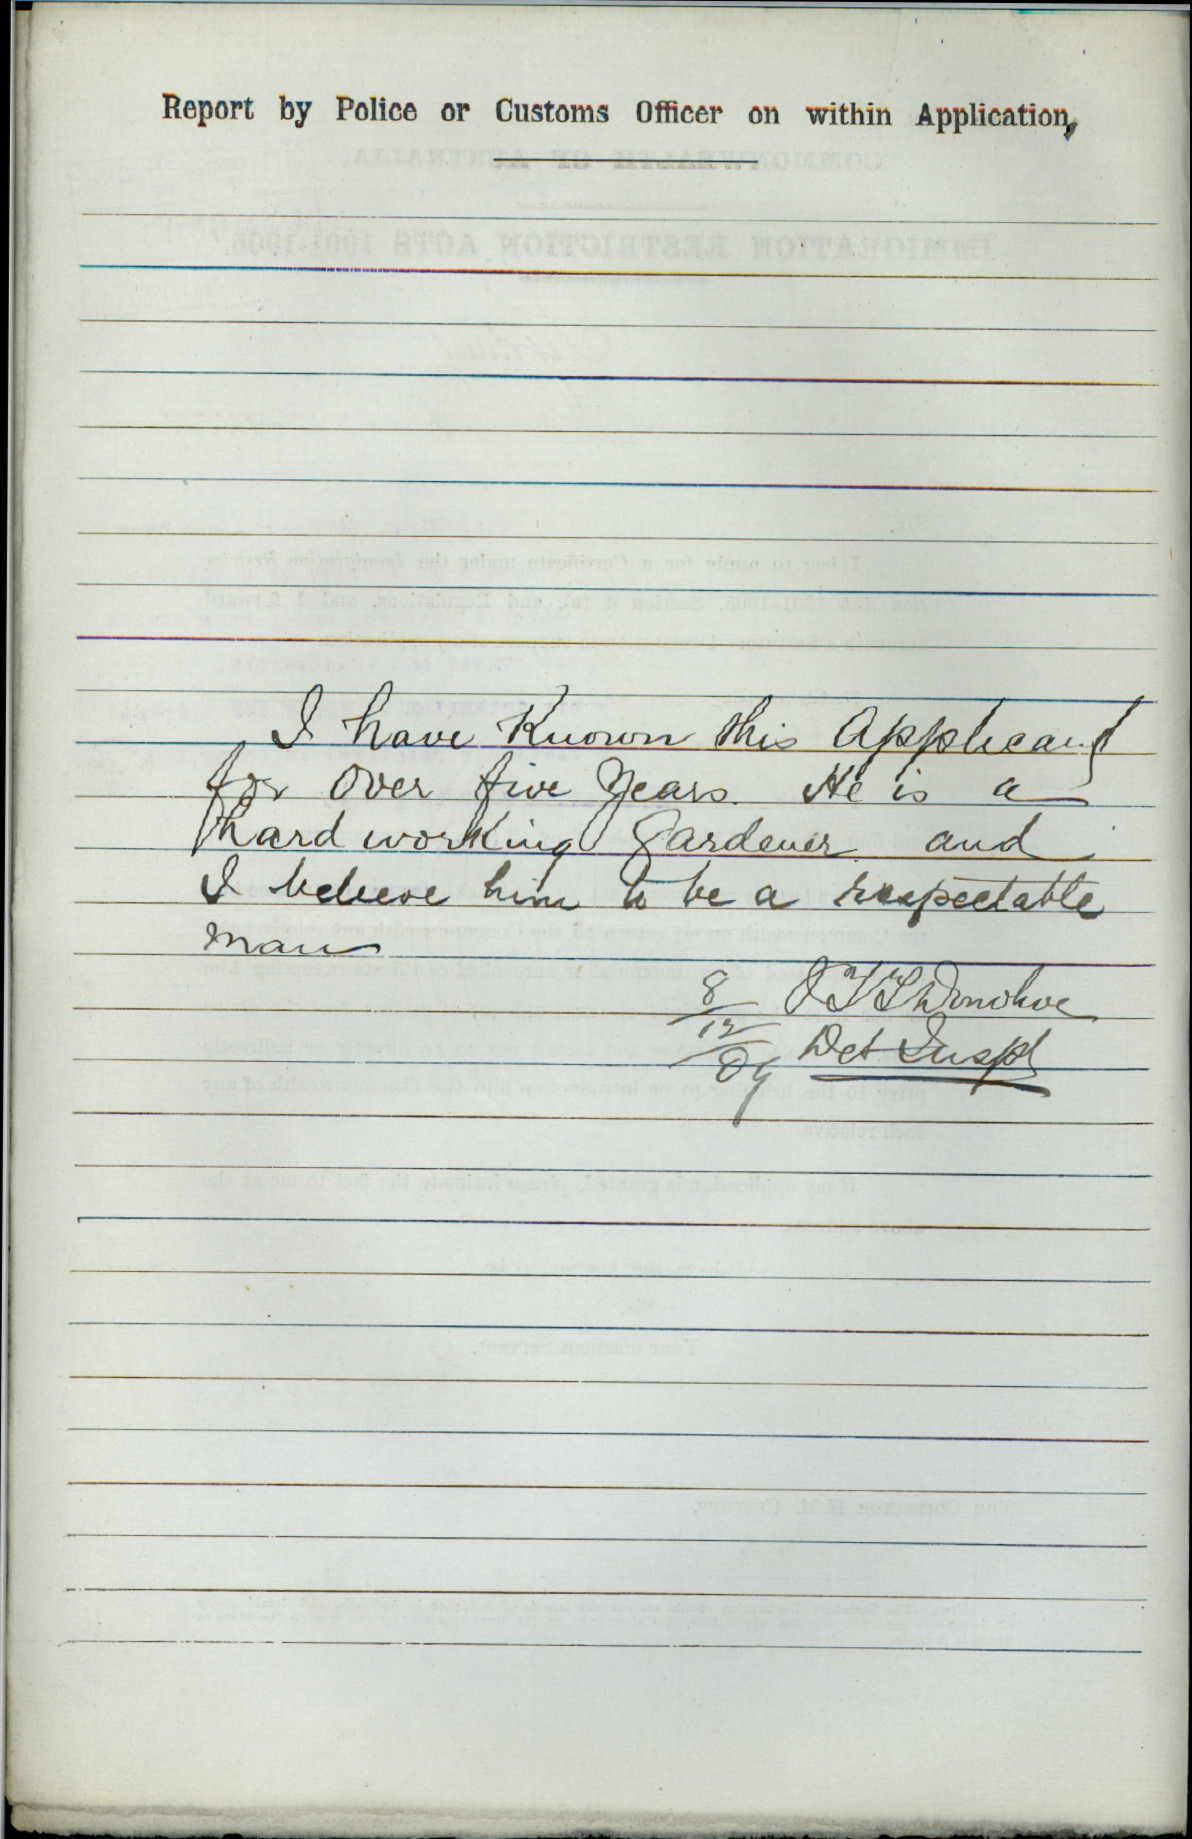 Report by Police or Customs Officer on within Application,
I have Known this Applicant
for over five Years. He is a
hard working Gardener and
I believe him to be a respectable
man
8/12/09 Donohoe
Det Inspr